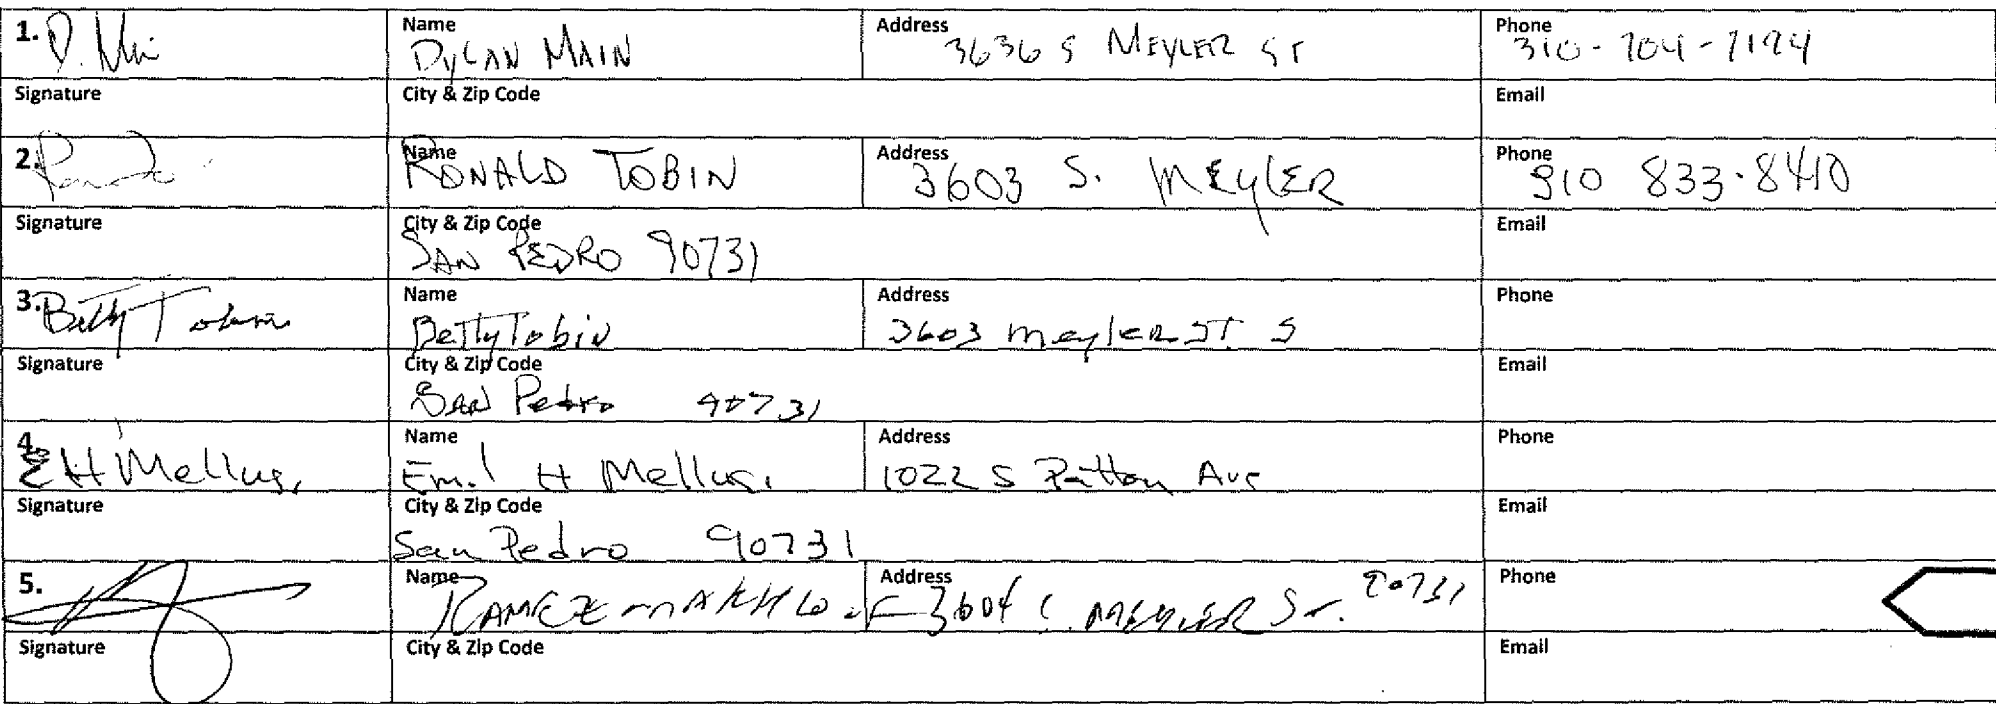 1. D. Main Name DYLAN MAIN Address 3636 S MEYLER ST Phone 310-704-7194
Signature City & Zip Code Email
2. Name RONALD TOBIN Address 3603 S. MEYLER Phone 310 833-8410
Signature City & Zip Code SAN PEDRO 90731 Email
3. Betty Tobin Name Betty Tobin Address 3603 meyler ST. S Phone
Signature City & Zip Code SAN Pedro 90731 Email
4. E H Mellusi Name Emil H Mellusi Address 1022 S Patton Ave Phone
Signature City & Zip Code San Pedro 90731 Email
5. Name RAMEZ MAKHLOUF Address 3604 S. MEYLER St. 90731 Phone
Signature City & Zip Code Email